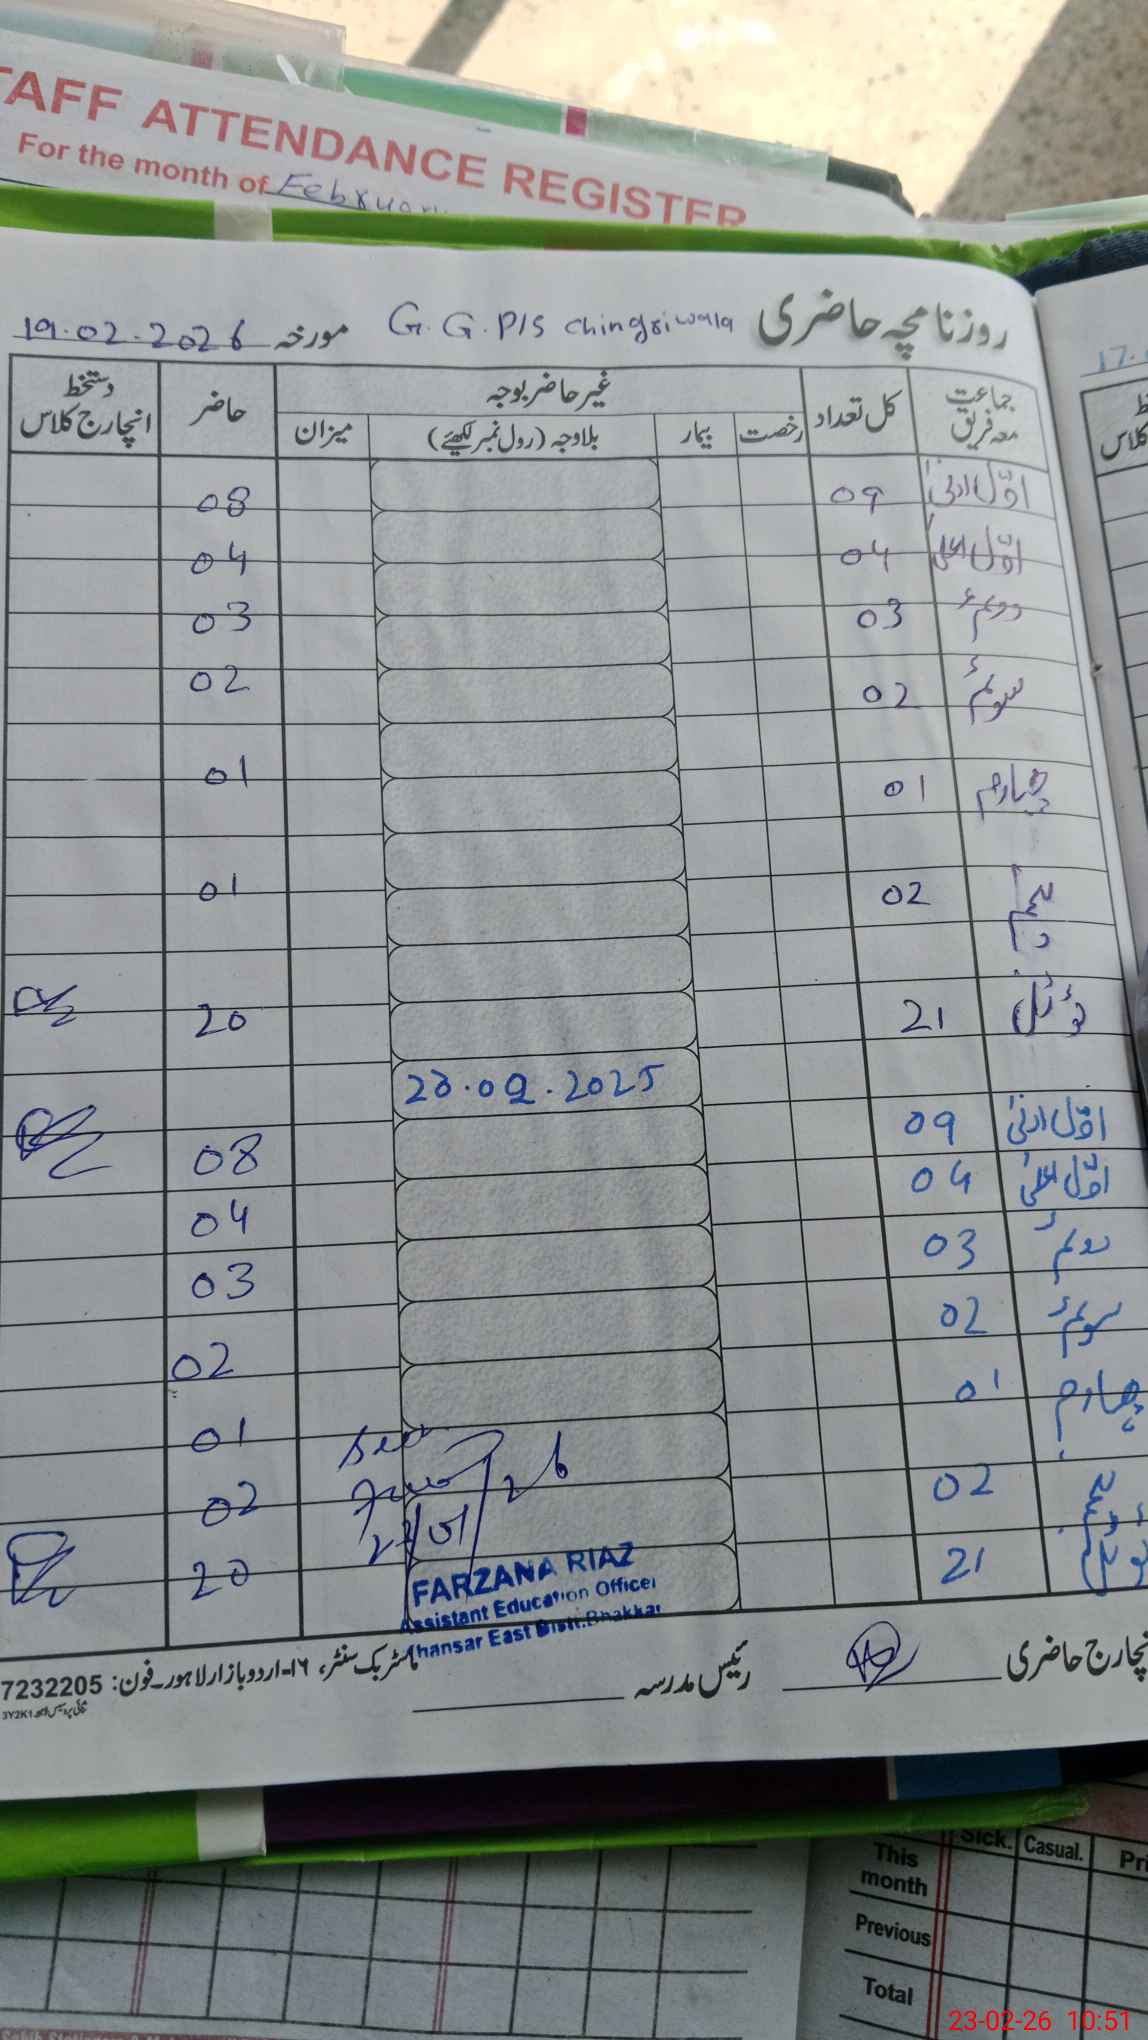 TAFF ATTENDANCE REGISTER
For the month of February
روزنامچہ حاضری G.G.P/S Chingriwala مورخہ 19.02.2026
17.
جماعت معہ فریق کل تعداد غیر حاضر بوجہ حاضر دستخط انچارج کلاس
رخصت بیمار بلاوجہ (رول نمبر لکھیئے) میزان
کلاس
اوّل ادنیٰ 09 08
اوّل اعلیٰ 04 04
دوئم 03 03
سوئم 02 02
چہارم 01 01
پنجم 02 01
ٹوٹل 21 20
20.02.2025
اوّل ادنیٰ 09 08
اوّل اعلیٰ 04 04
دوئم 03 03
سوئم 02 02
چہارم 01 01
پنجم 02 02
ٹوٹل 21 20
FARZANA RIAZ
Assistant Education Officer
hansar East Distt.Bhakkar
نچارج حاضری رئیس مدرسہ
ماسٹر بک سنٹر، ۱۶-اردو بازار لاہور۔فون: 7232205
3Y2K1
This month
Sick. Casual. Pri
Previous
Total
23-02-26 10:51